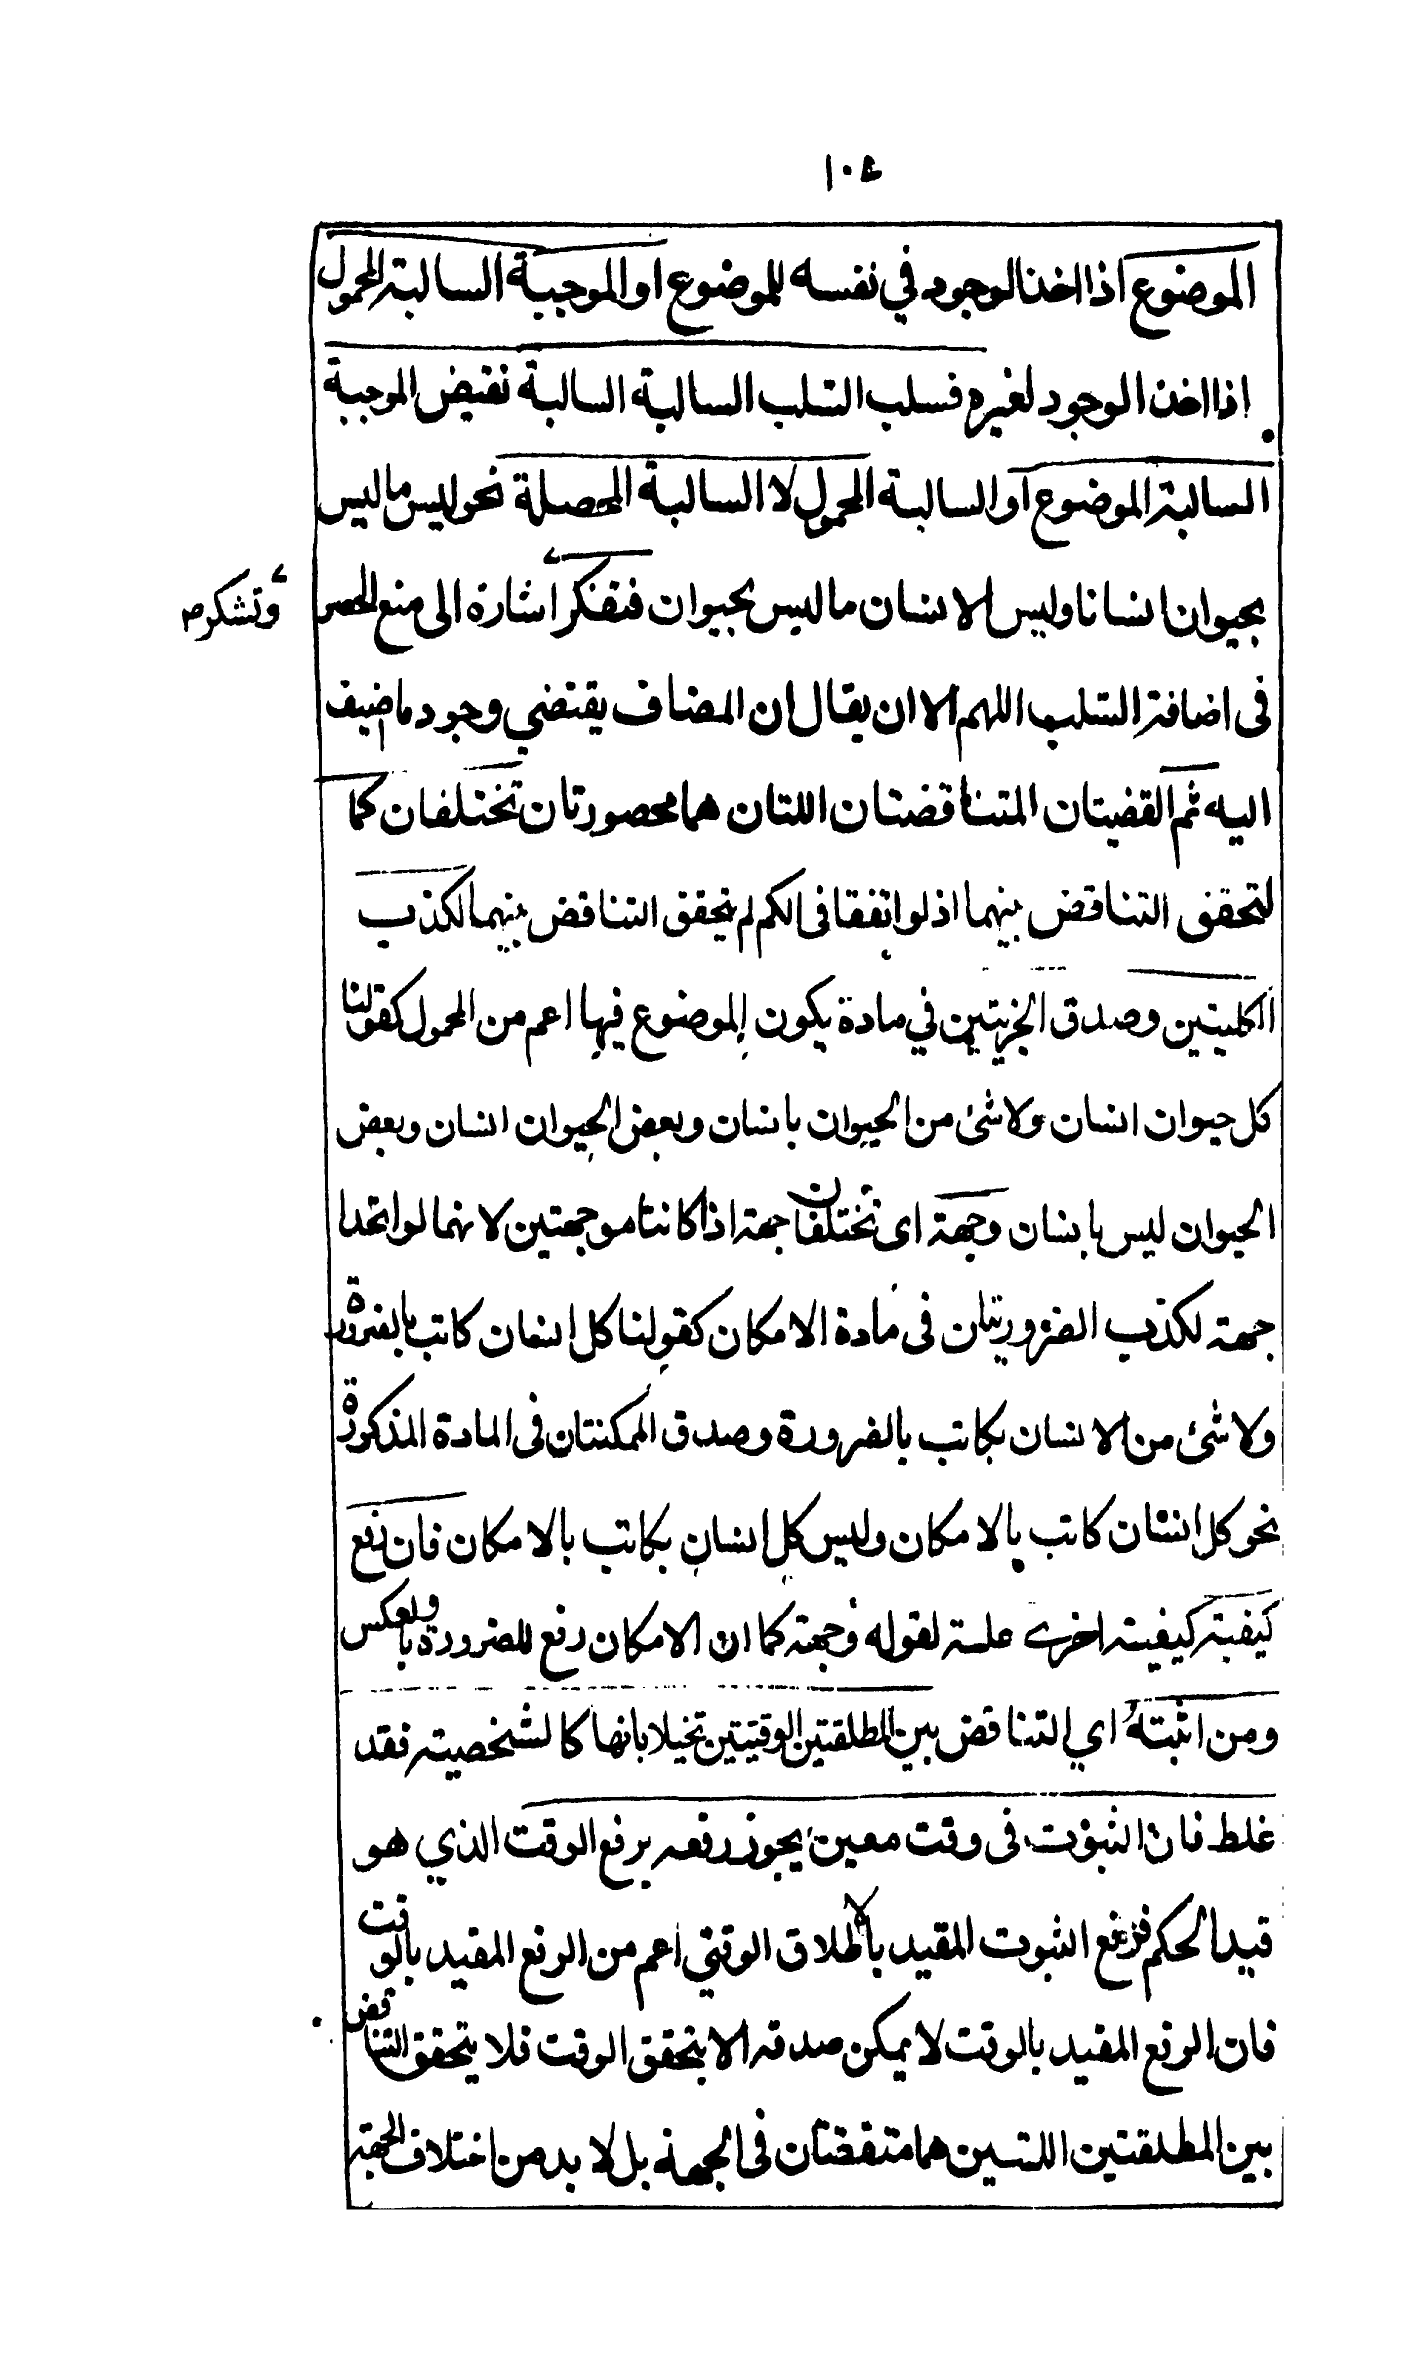 ١٠٤
الموضوع اذا اخذ الوجود في نفسه للموضوع او الموجبة السالبة المحمول
اذا اخذ الوجود لغيره فسلب السلب السالبة السالبة نقيض الموجبة
السالبة الموضوع او السالبة المحمول لا السالبة المحصلة نحو ليس ما ليس
بحيوان انسانا وليس الانسان ما ليس بحيوان فتفكر اشارة الى منع الحصر
وتشكر ص
فى اضافة السلب اللهم الا ان يقال ان المضاف يقتضي وجود ما ضيف
اليه ثم القضيتان المتناقضتان اللتان هما محصورتان تختلفان كما
لتحقق التناقض بينهما اذ لو اتفقا فى الكم لم يتحقق التناقض بينهما لكذب
الكليتين وصدق الجزيتين في مادة يكون الموضوع فيها اعم من المحمول كقولنا
كل حيوان انسان ولا شئ من الحيوان بانسان وبعض الحيوان انسان وبعض
الحيوان ليس بانسان وجهة اى تختلفان جهة اذا كانتا موجهتين لانهما لو اتحدا
جهة لكذب الضروريتان فى مادة الامكان كقولنا كل انسان كاتب بالضرورة
ولا شئ من الانسان بكاتب بالضرورة وصدق الممكنتان فى المادة المذكورة
نحو كل انسان كاتب بالامكان وليس كل انسان بكاتب بالامكان فان رفع
كيفية كيفية اخرى علة لقوله وجهة كما ان الامكان رفع للضرورة وبالعكس
ومن اثبته اي التناقض بين المطلقتين الوقتيتين تخيلا بانها كالشخصية فقد
غلط فان الثبوت فى وقت معين يجوز رفعه برفع الوقت الذي هو
قيد الحكم فرفع الثبوت المقيد بالاطلاق الوقتي اعم من الرفع المقيد بالوقت
فان الرفع المقيد بالوقت لا يمكن صدقه الا بتحقق الوقت فلا يتحقق التناقض
بين المطلقتين اللتين هما متفقتان فى الجهة بل لا بد من اختلاف الجهة